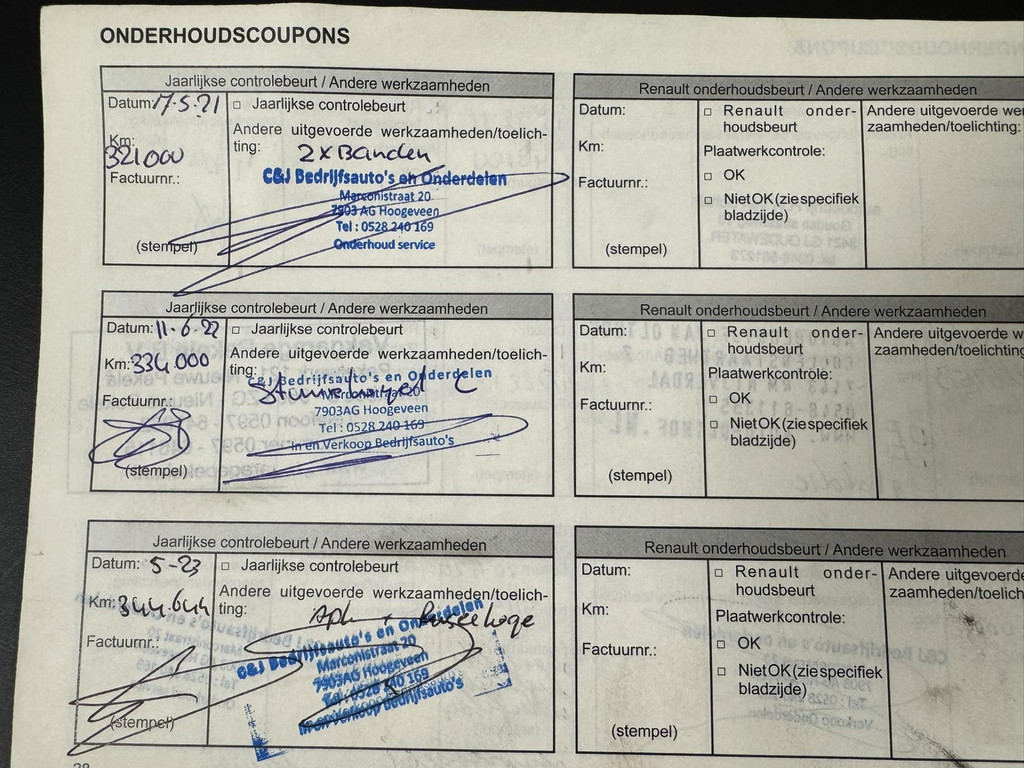 ONDERHOUDSCOUPONS
Jaarlijkse controlebeurt / Andere werkzaamheden
Datum: 17-5-21
□ Jaarlijkse controlebeurt
Km: 321000
Andere uitgevoerde werkzaamheden/toelich-
ting: 2x Banden
Factuurnr.:
C&J Bedrijfsauto's en Onderdelen
Marconistraat 20
7903 AG Hoogeveen
Tel : 0528 240 169
Onderhoud service
(stempel)
Renault onderhoudsbeurt / Andere werkzaamheden
Datum:
Km:
Factuurnr.:
(stempel)
□ Renault onder-
houdsbeurt
Plaatwerkcontrole:
□ OK
□ Niet OK (zie specifiek
bladzijde)
Andere uitgevoerde we
zaamheden/toelichting:
Jaarlijkse controlebeurt / Andere werkzaamheden
Datum: 11-6-22
□ Jaarlijkse controlebeurt
Km: 334.000
Andere uitgevoerde werkzaamheden/toelich-
ting:
Factuurnr.:
C&J Bedrijfsauto's en Onderdelen
Marconistraat 20
7903AG Hoogeveen
Tel : 0528 240 169
In en Verkoop Bedrijfsauto's
(stempel)
Renault onderhoudsbeurt / Andere werkzaamheden
Datum:
Km:
Factuurnr.:
(stempel)
□ Renault onder-
houdsbeurt
Plaatwerkcontrole:
□ OK
□ Niet OK (zie specifiek
bladzijde)
Andere uitgevoerde w
zaamheden/toelichting
Jaarlijkse controlebeurt / Andere werkzaamheden
Datum: 5-23
□ Jaarlijkse controlebeurt
Km: 344.644
Andere uitgevoerde werkzaamheden/toelich-
ting: Apk +
Factuurnr.:
C&J Bedrijfsauto's en Onderdelen
Marconistraat 20
7903AG Hoogeveen
Tel : 0528 240 169
In en Verkoop Bedrijfsauto's
(stempel)
Renault onderhoudsbeurt / Andere werkzaamheden
Datum:
Km:
Factuurnr.:
(stempel)
□ Renault onder-
houdsbeurt
Plaatwerkcontrole:
□ OK
□ Niet OK (zie specifiek
bladzijde)
Andere uitgevoerde
zaamheden/toelich